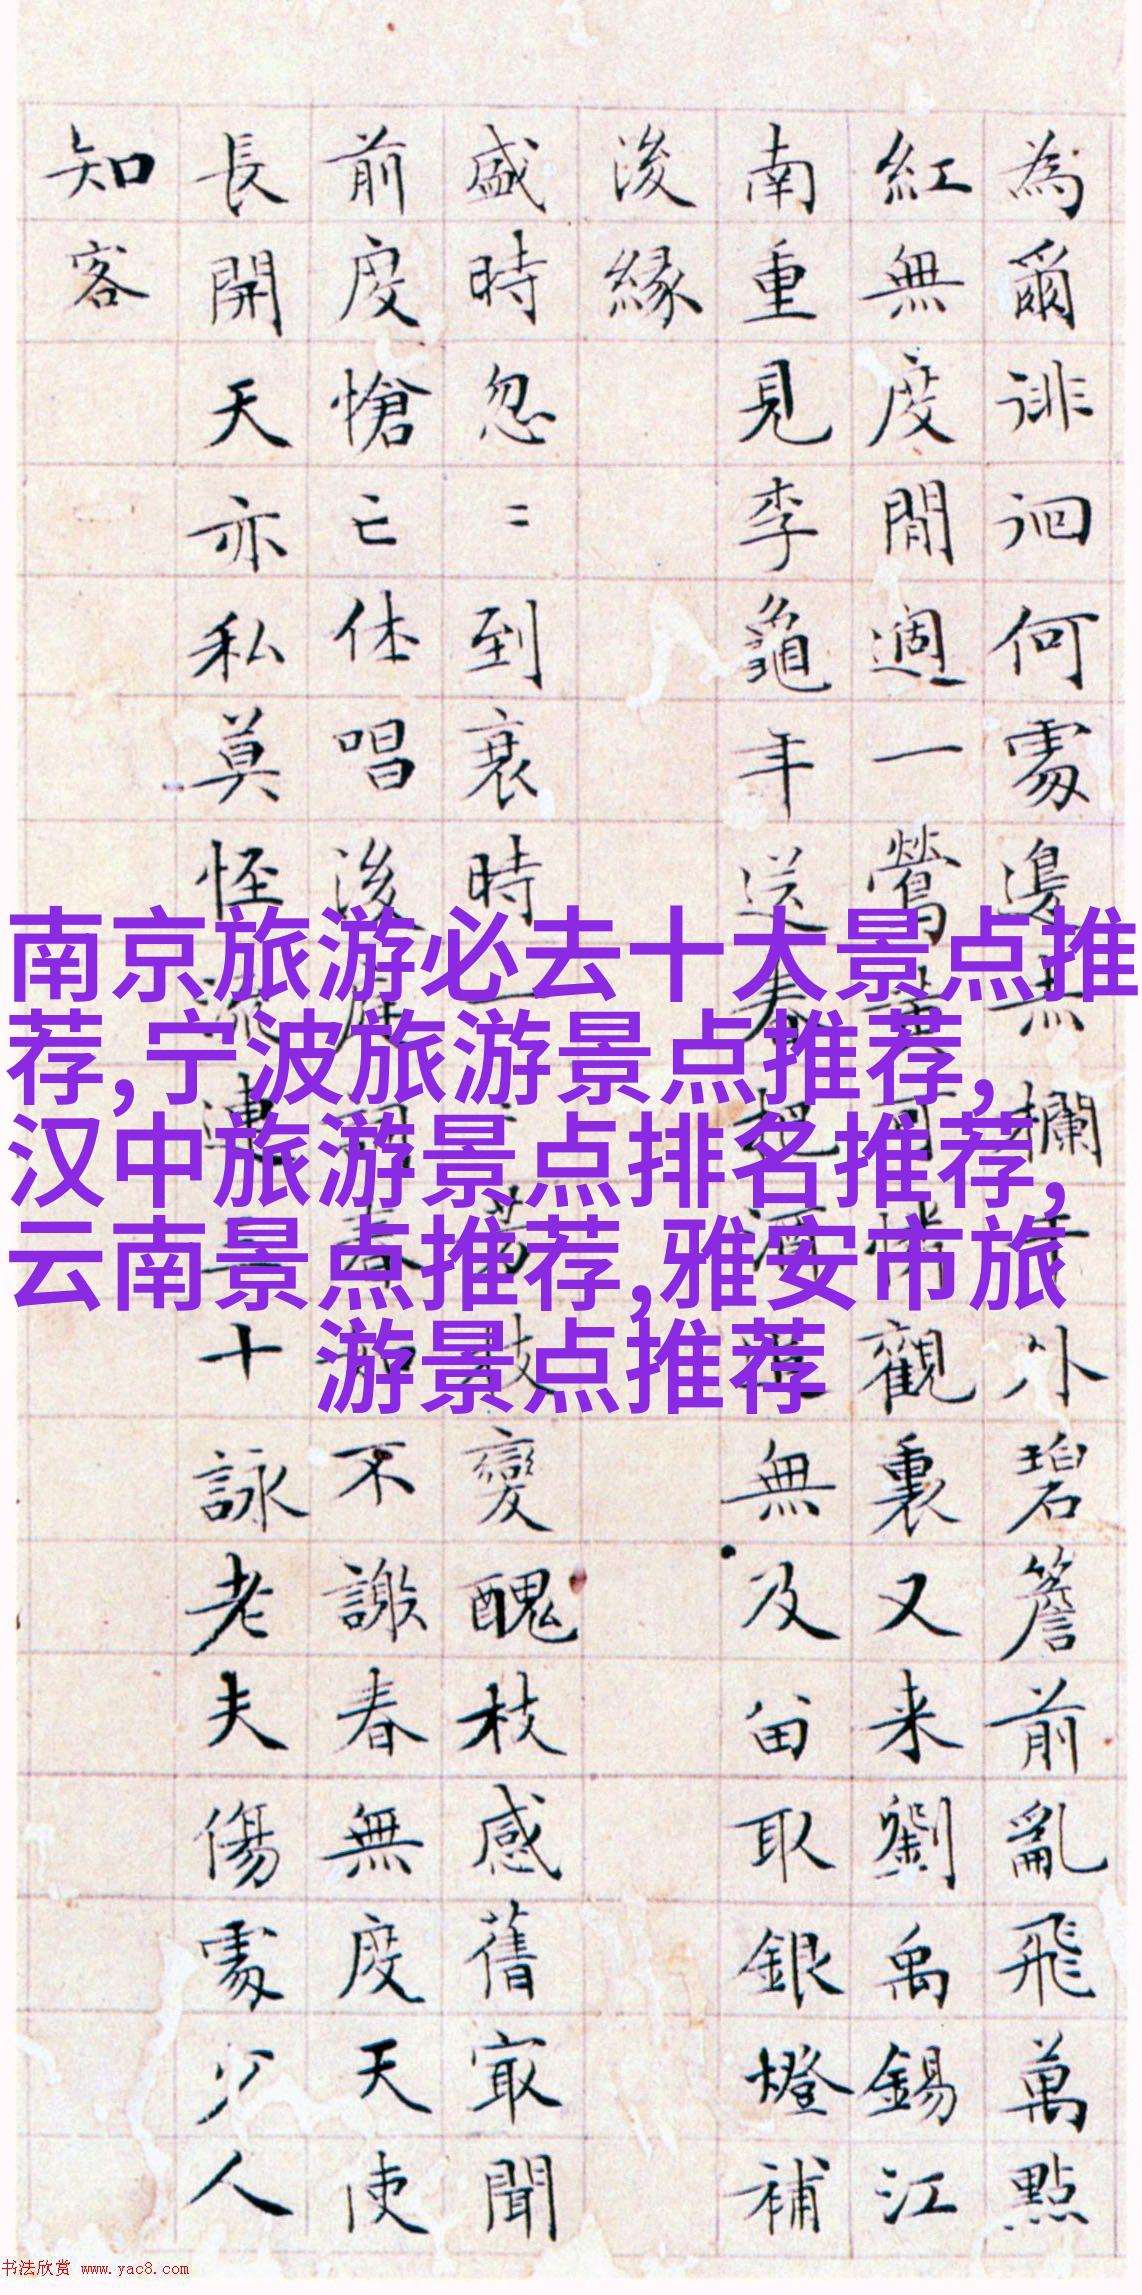 為爾徘徊何處邊赤欄干外碧簷前亂飛萬點
紅無度閒過一鶯黃可憐觀裏又来劉禹錫江
南重見李龜年送春把酒追無及留取銀燈補
後緣
盛時忽〻到衰時一〻芳枝變醜枝感舊最聞
前度愴亡休唱後庭詞春如不謝春無度天使
長開天亦私莫怪流連三十詠老夫傷處少人
知客
南京旅游必去十大景点推
荐,宁波旅游景点推荐,
汉中旅游景点排名推荐,
云南景点推荐,雅安市旅
游景点推荐
书法欣赏 www.yac8.com